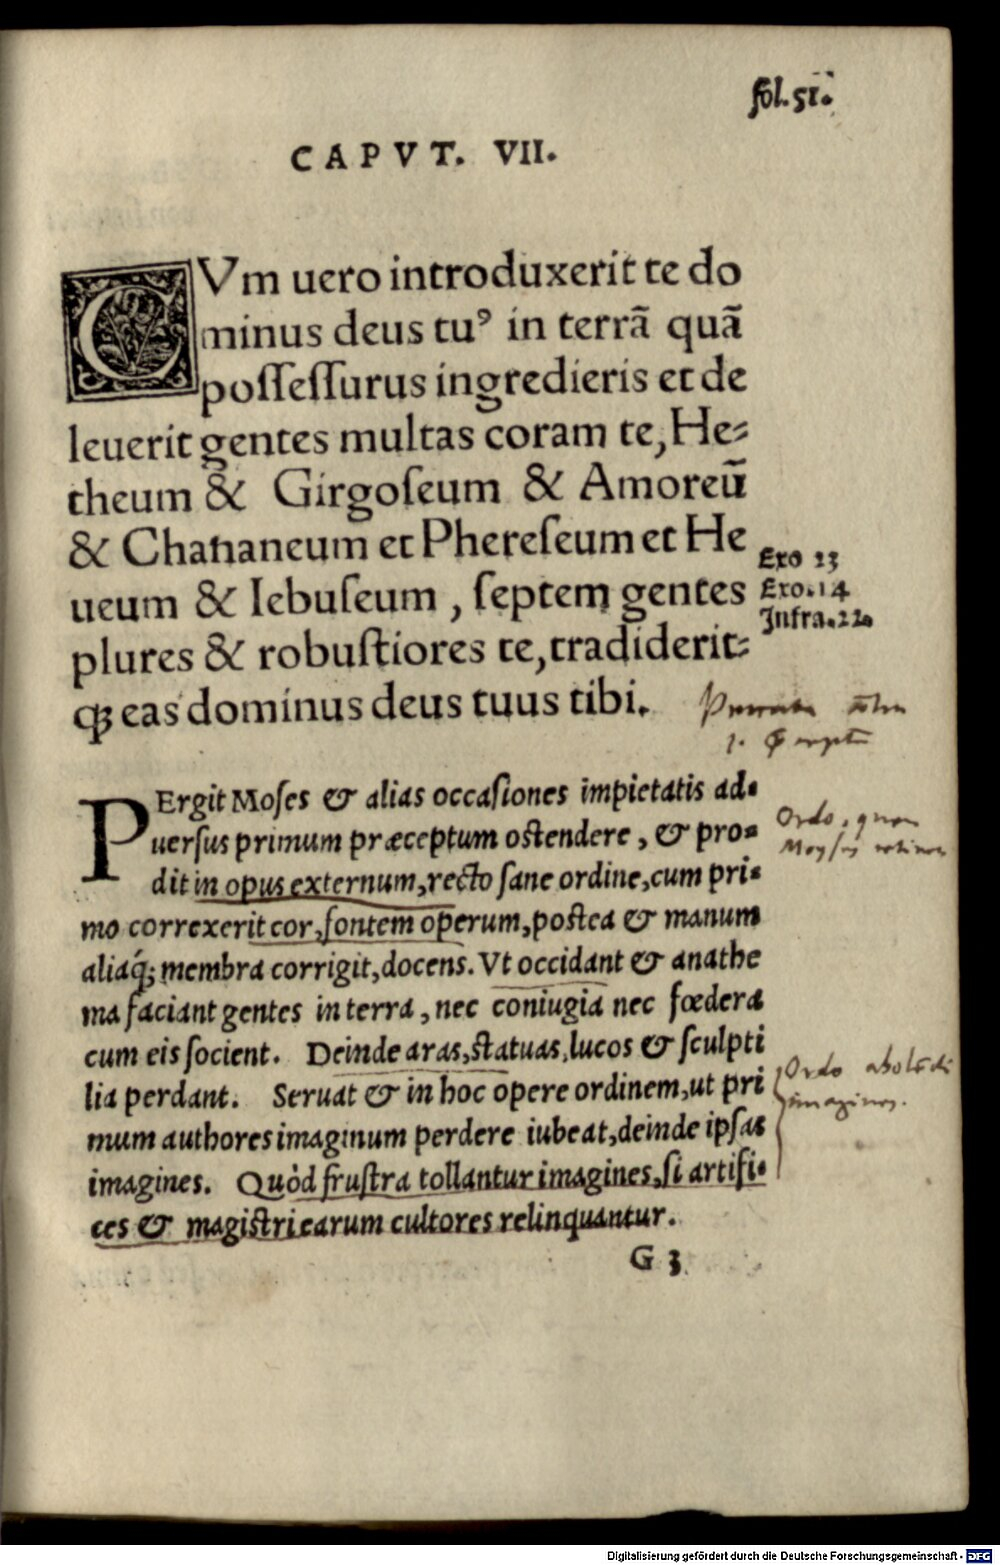 fol.51.
CAPVT. VII.
CVm uero introduxerit te do
minus deus tuꝰ in terrã quã
possessurus ingredieris et de
leuerit gentes multas coram te, He⸗
theum & Girgoseum & Amoreũ
& Chananeum et Phereseum et He
ueum & Iebuseum, septem gentes
plures & robustiores te, tradiderit⸗
qꝫ eas dominus deus tuus tibi.
Exo 23
Exo.14
Infra.22.
PErgit Moses & alias occasiones impietatis ad⸗
uersus primum præceptum ostendere, & pro⸗
dit in opus externum, recto sane ordine, cum pri⸗
mo correxerit cor, fontem operum, postea & manum
aliaq́ꝫ membra corrigit, docens. Vt occidant & anathe
ma faciant gentes in terra, nec coniugia nec fœdera
cum eis socient. Deinde aras, statuas, lucos & sculpti
lia perdant. Seruat & in hoc opere ordinem, ut pri
mum authores imaginum perdere iubeat, deinde ipsas
imagines. Quòd frustra tollantur imagines, si artifi⸗
ces & magistri earum cultores relinquantur.
G 3
Ordo, quem
Moyses
Ordo
imagines.
Digitalisierung gefördert durch die Deutsche Forschungsgemeinschaft - DFG